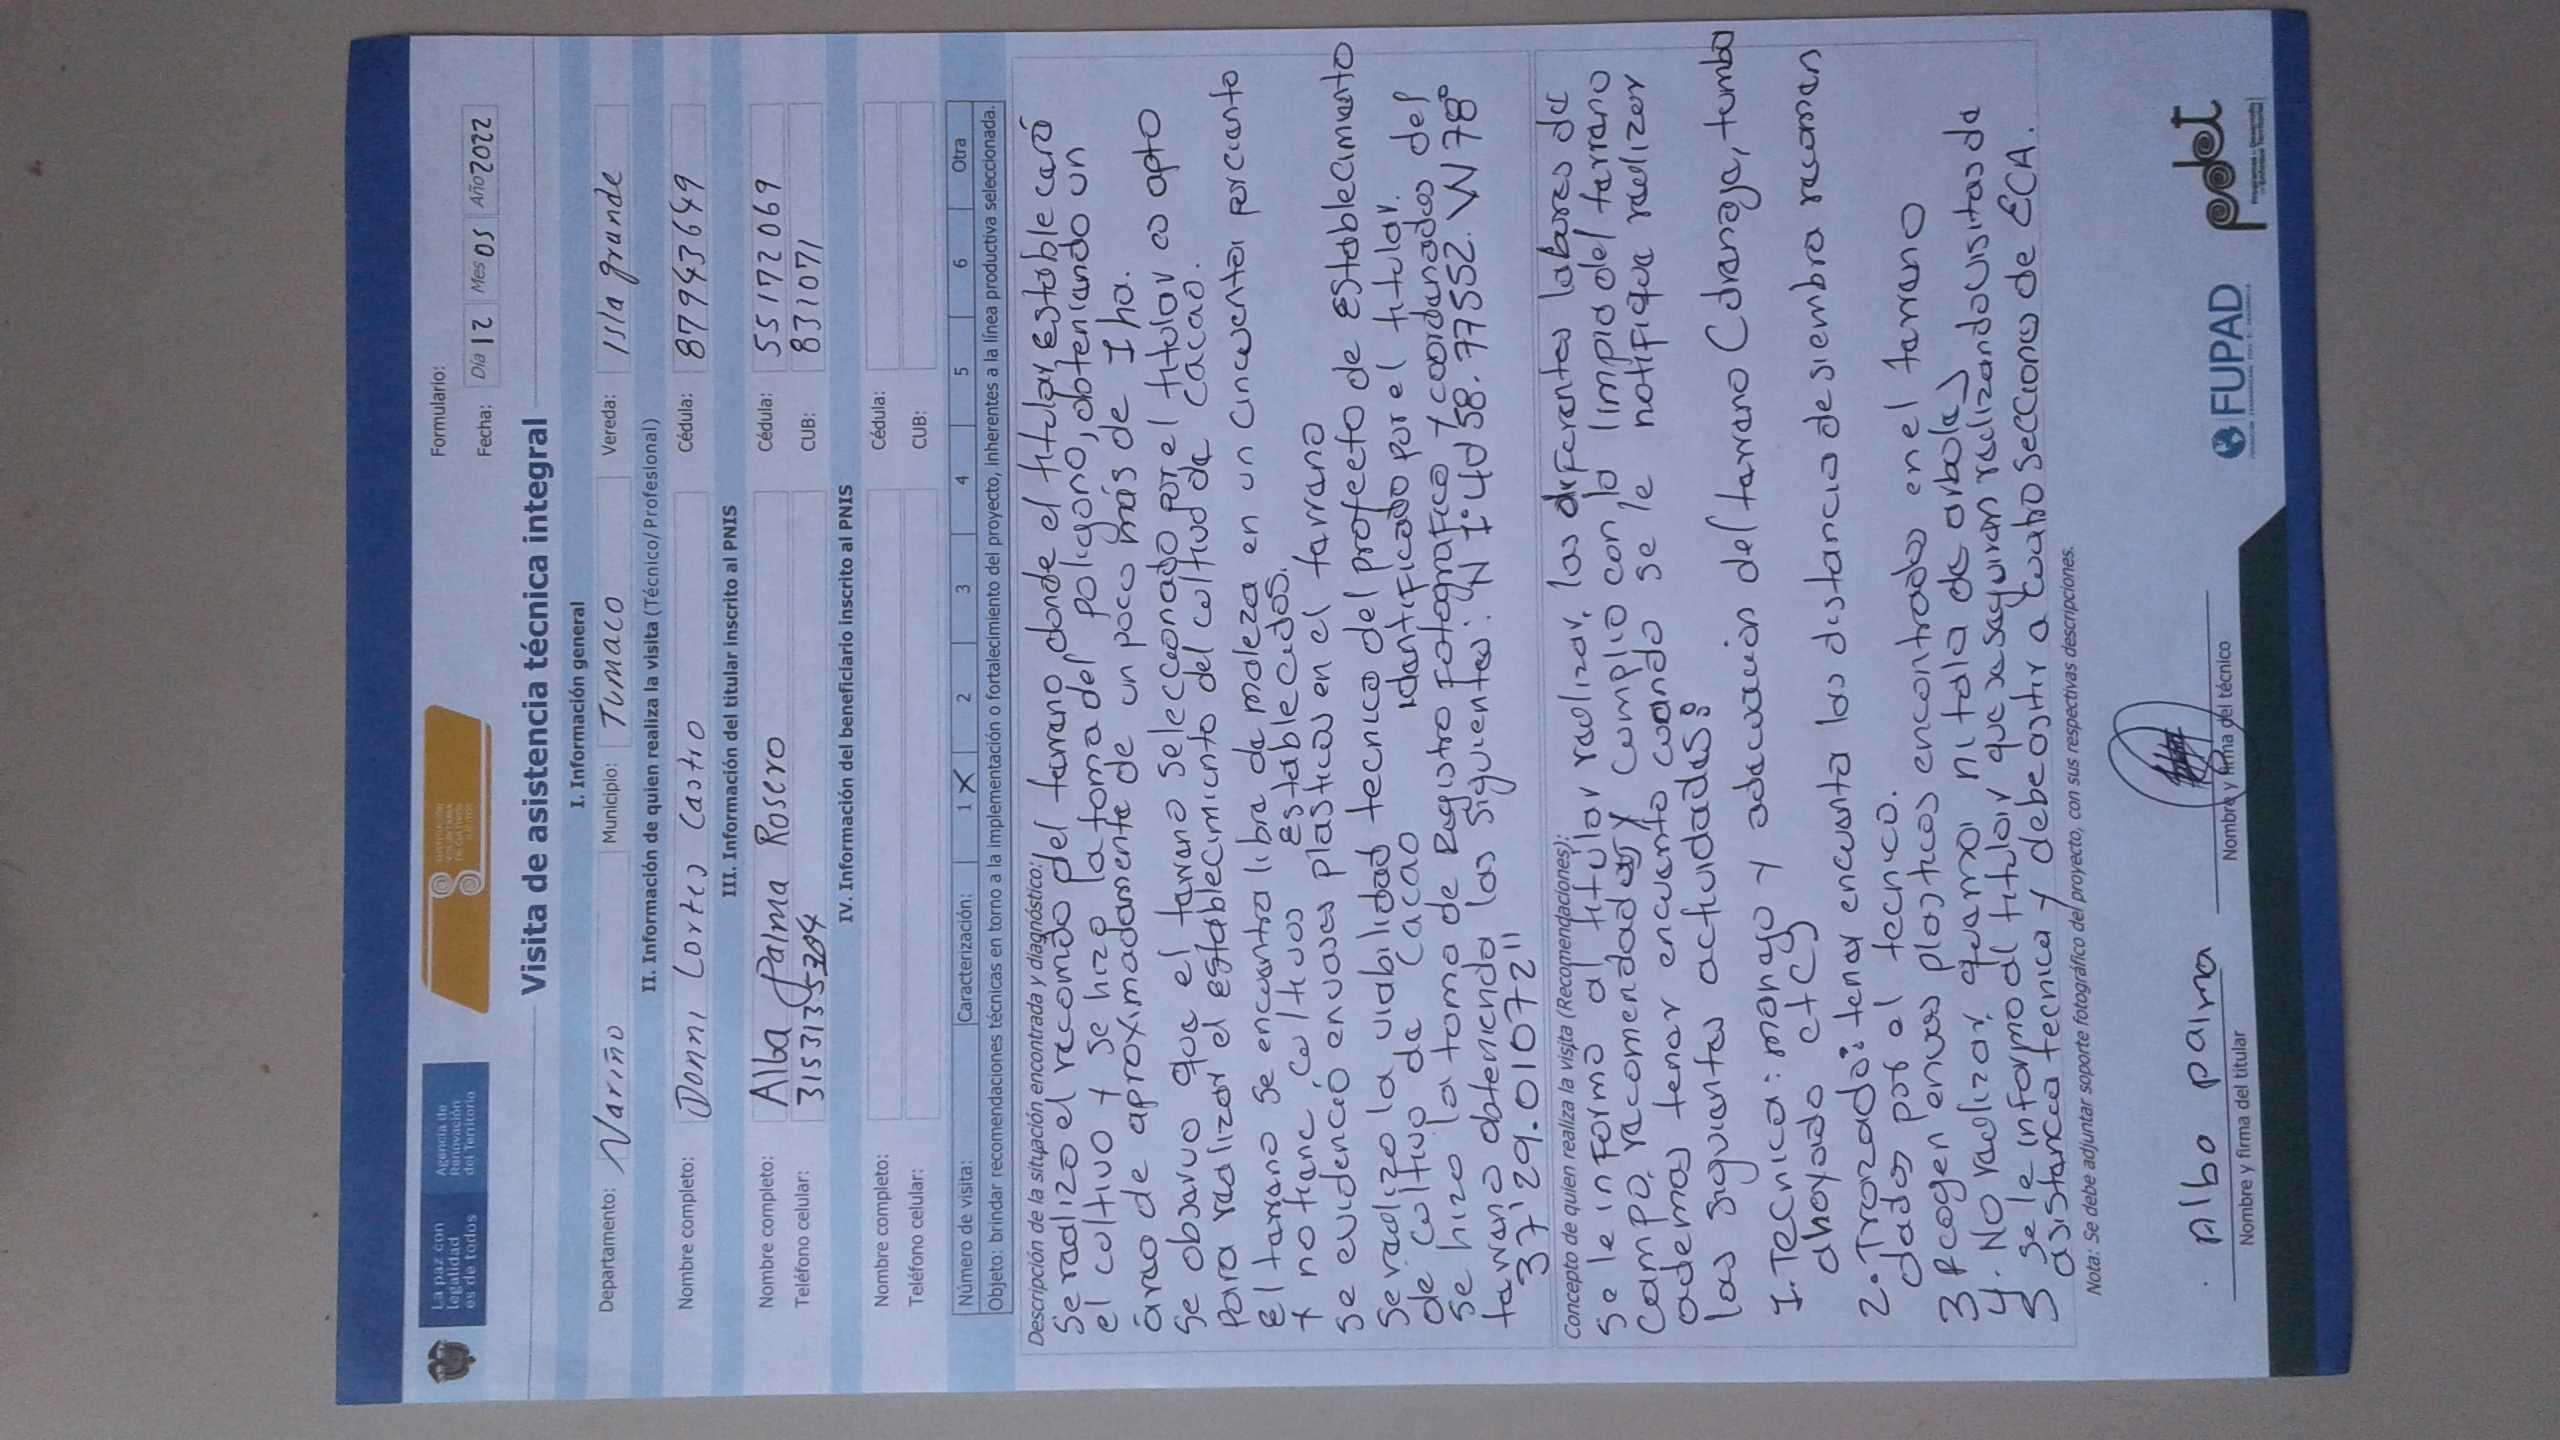 La paz con
legalidad
es de todos
Agencia de
Renovación
del Territorio
SUSTITUCIÓN
VOLUNTARIA
DE CULTIVOS
ILÍCITOS
Formulario:
Fecha: Día 12 Mes 05 Año 2022
Visita de asistencia técnica integral
I. Información general
Departamento: Nariño Municipio: Tumaco Vereda: Isla grande
II. Información de quien realiza la visita (Técnico/Profesional)
Nombre completo: Donni Cortes Castro Cédula: 87943649
III. Información del titular inscrito al PNIS
Nombre completo: Alba Palma Rosero Cédula: 55172069
Teléfono celular: 3153135204 CUB: 831071
IV. Información del beneficiario inscrito al PNIS
Nombre completo: Cédula:
Teléfono celular: CUB:
Número de visita: Caracterización: 1 X 2 3 4 5 6 Otra
Objeto: brindar recomendaciones técnicas en torno a la implementación o fortalecimiento del proyecto, inherentes a la línea productiva seleccionada.
Descripción de la situación encontrada y diagnóstico:
Se realizo el recorrido del terreno, donde el titular estable cerá
el cultivo y se hizo la toma del poligono, obteniendo un
área de aproximadamente de un poco más de 1 ha.
Se observo que el terreno seleccionado por el titular es apto
para realizar el establecimiento del cultivo de cacao.
El terreno se encuentra libre de maleza en un cincuenta porciento
y no tiene cultivos establecidos.
Se evidenció envases plasticos en el terreno
Se realizo la viabilidad tecnica del profecto de establecimiento
de cultivo de cacao identificado por el titular.
Se hizo la toma de Registro Fotografico y coordenadas del
terreno obteniendo las siguientes: N 1°40'58.77552. W 78°
37'29.01072"
Concepto de quien realiza la visita (Recomendaciones):
Se le informo al titular realizar, las diferentes labores de
campo, recomendadas y cumplio con la limpia del terreno
ademas tener encuenta cuando se le notifique realizar
las siguientes actividades:
1. Tecnica: manejo y adecuación del terreno (drenaje, tumba
ahoyado etc)
2. Trazado: tener encuenta las distancia de siembra recomen
dados por el tecnico.
3 Recogen envases plasticos encontrados en el terreno
4. No realizar quema ni tala de arboles
5 se le informo al titular que se seguiran realizando visitas de
asistencia tecnica y debe asitir a cuatro secciones de ECA.
Nota: Se debe adjuntar soporte fotográfico del proyecto, con sus respectivas descripciones.
Alba palma
Nombre y firma del titular
Nombre y firma del técnico
FUPAD
pdet